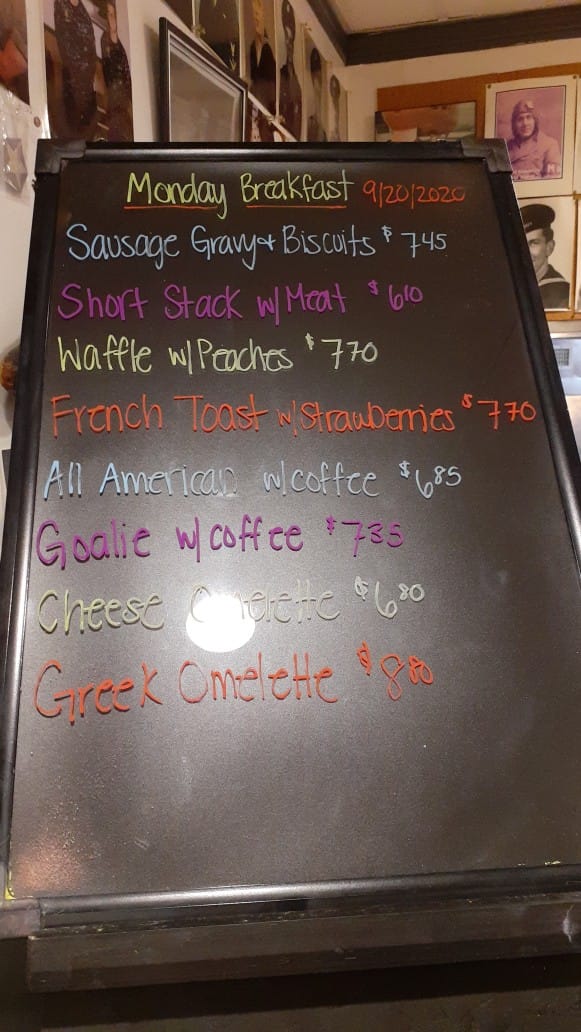 Monday Breakfast 9/20/2020
Sausage Gravy & Biscuits $ 745
Short Stack w/ Meat $ 610
Waffle w/ Peaches $ 770
French Toast w/ Strawberries $ 770
All American w/ coffee $ 685
Goalie w/ coffee $ 735
Cheese Omelette $ 680
Greek Omelette $ 880